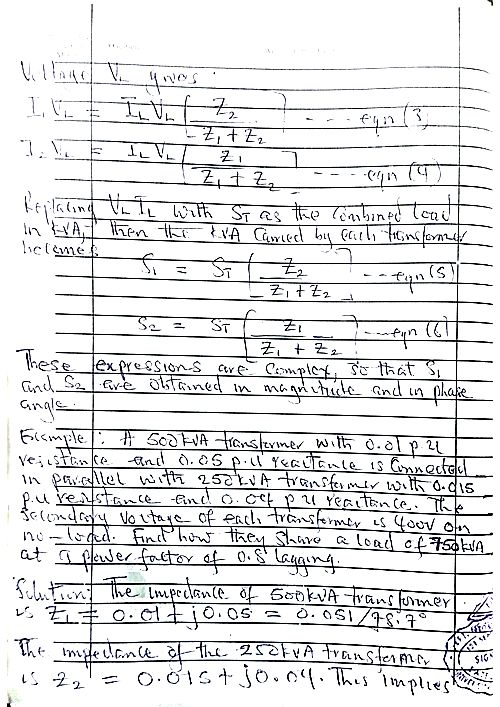 Voltage VL gives:
I1 VL = IL VL [ Z2 / Z1 + Z2 ] --- eqn (3)
I2 VL = IL VL [ Z1 / Z1 + Z2 ] --- eqn (4)
Replacing VL IL with ST as the Combined load
in kVA, then the kVA Carried by each transformer
becomes
S1 = ST [ Z2 / Z1 + Z2 ] --- eqn (5)
S2 = ST [ Z1 / Z1 + Z2 ] --- eqn (6)
These expressions are Complex, so that S1
and S2 are obtained in magnitude and in phase
angle.
Example: A 500kVA transformer with 0.01 p.u
resistance and 0.05 p.u reactance is Connected
in parallel with 250kVA transformer with 0.015
p.u resistance and 0.04 p.u reactance. The
Secondary voltage of each transformer is 400V on
no-load. Find how they share a load of 750kVA
at a power factor of 0.8 lagging.
Solution: The impedance of 500kVA transformer
is Z1 = 0.01 + j0.05 = 0.051 /78.7°
The impedance of the 250kVA transformer
is Z2 = 0.015 + j0.04. This implies